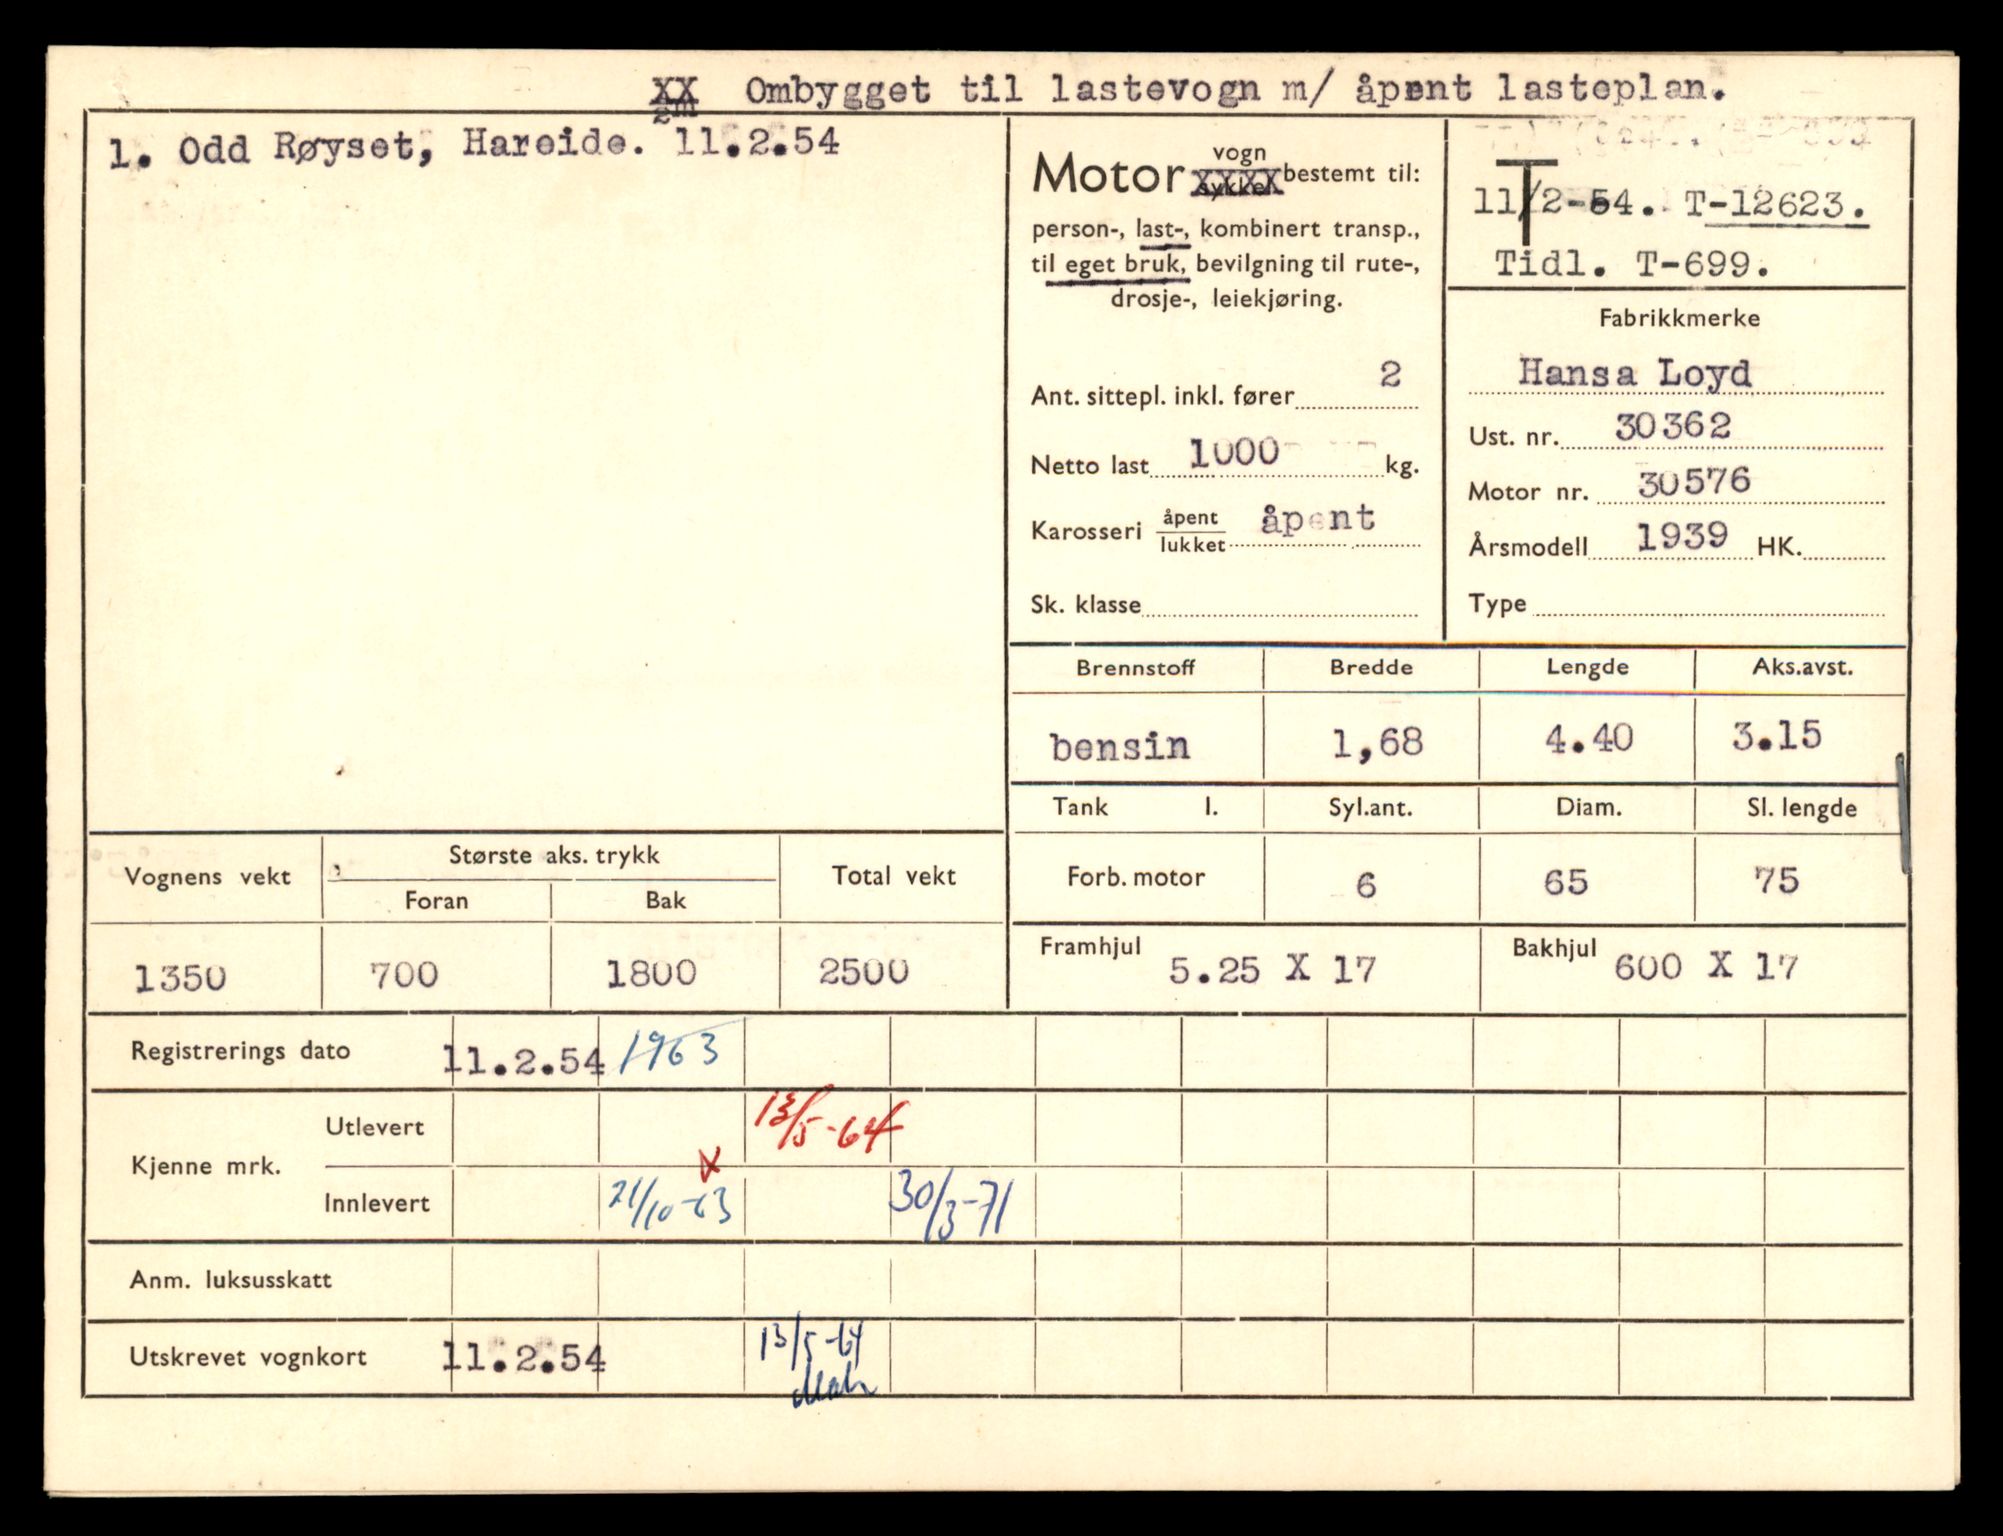 XX Ombygget til lastevogn m/ åpent lasteplan.
1. Odd Røyset, Hareide. 11.2.54
Motor vogn bestemt til:
sykkel
person-, last-, kombinert transp.,
til eget bruk, bevilgning til rute-,
drosje-, leiekjøring.
Ant. sittepl. inkl. fører 2
Netto last 1000 kg.
Karosseri åpent lukket åpent
Sk. klasse
T
11/2-54. T-12623.
Tidl. T-699.
Fabrikkmerke
Hansa Loyd
Ust. nr. 30362
Motor nr. 30576
Årsmodell 1939 HK.
Type
Brennstoff Bredde Lengde Aks.avst.
bensin 1,68 4.40 3.15
Tank l. Syl.ant. Diam. Sl. lengde
Forb. motor 6 65 75
Framhjul 5.25 X 17 Bakhjul 600 X 17
Vognens vekt Største aks. trykk Total vekt
Foran Bak
1350 700 1800 2500
Registrerings dato 11.2.54 1963
Kjenne mrk.
Utlevert 13/5-64
Innlevert 21/10-63 x 30/3-71
Anm. luksusskatt
Utskrevet vognkort 11.2.54 13/5-64